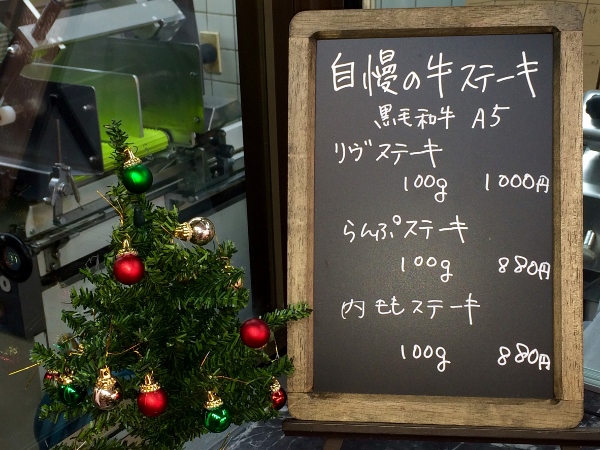 自慢の牛ステーキ
黒毛和牛 A5
リヴステーキ
100g 1000円
らんぷステーキ
100g 880円
内ももステーキ
100g 880円